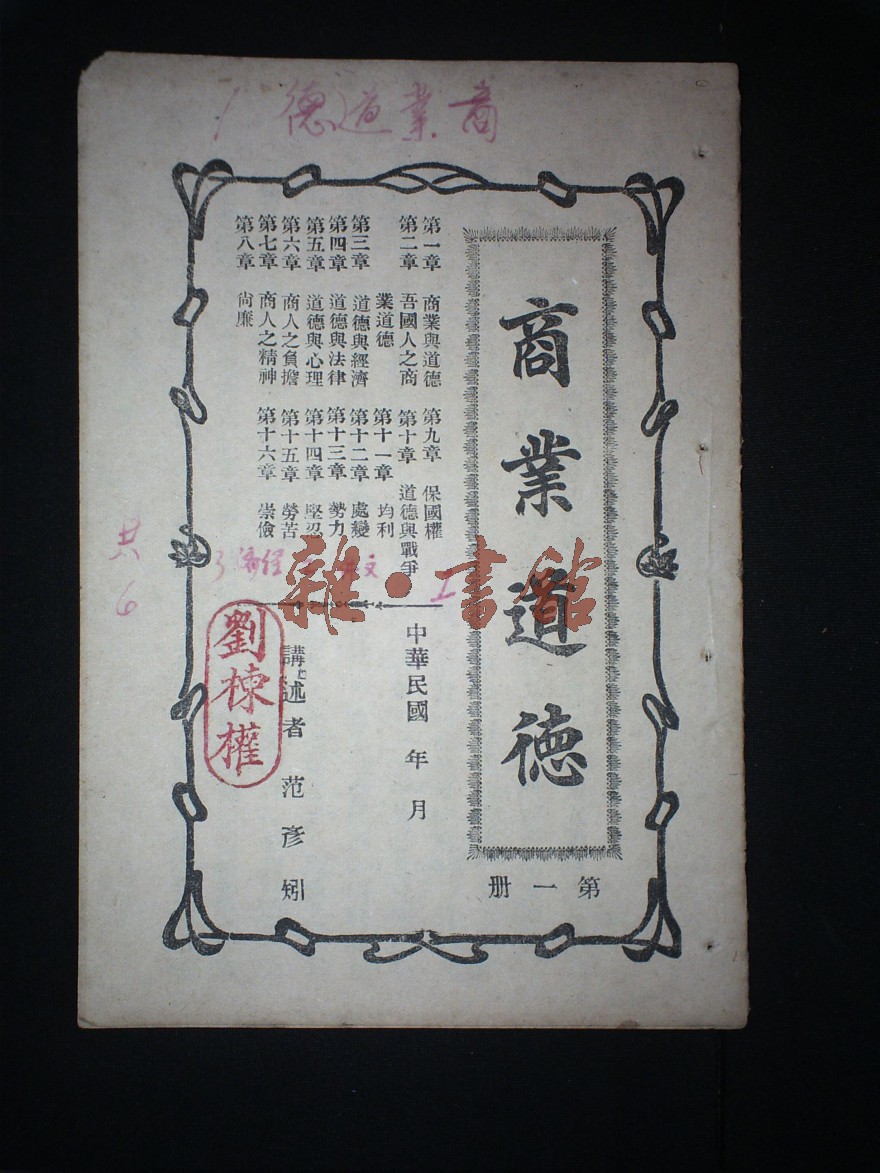 商業道德
商業道德
第一册
第一章 商業與道德
第二章 吾國人之商業道德
第三章 道德與經濟
第四章 道德與法律
第五章 道德與心理
第六章 商人之負擔
第七章 商人之精神
第八章 尙廉
第九章 保國權
第十章 道德與戰爭
第十一章 均利
第十二章 處變
第十三章 勢力
第十四章 堅忍
第十五章 勞苦
第十六章 崇儉
中華民國 年 月
講述者 范彥矧
劉棟權
共6
雜·書館